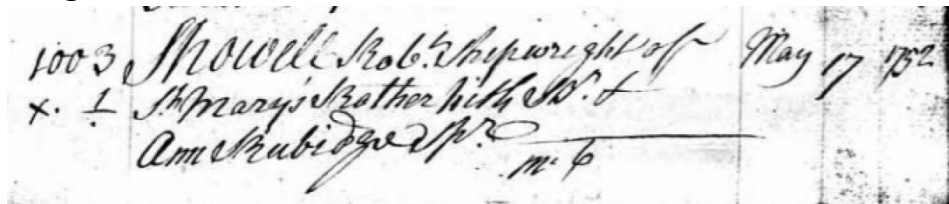 1003 Showell Rob.t Shipwright of May 17 1752
x. 1 St. Mary's Rotherhith Br. &
Ann Rubidge Spr.
m. 6